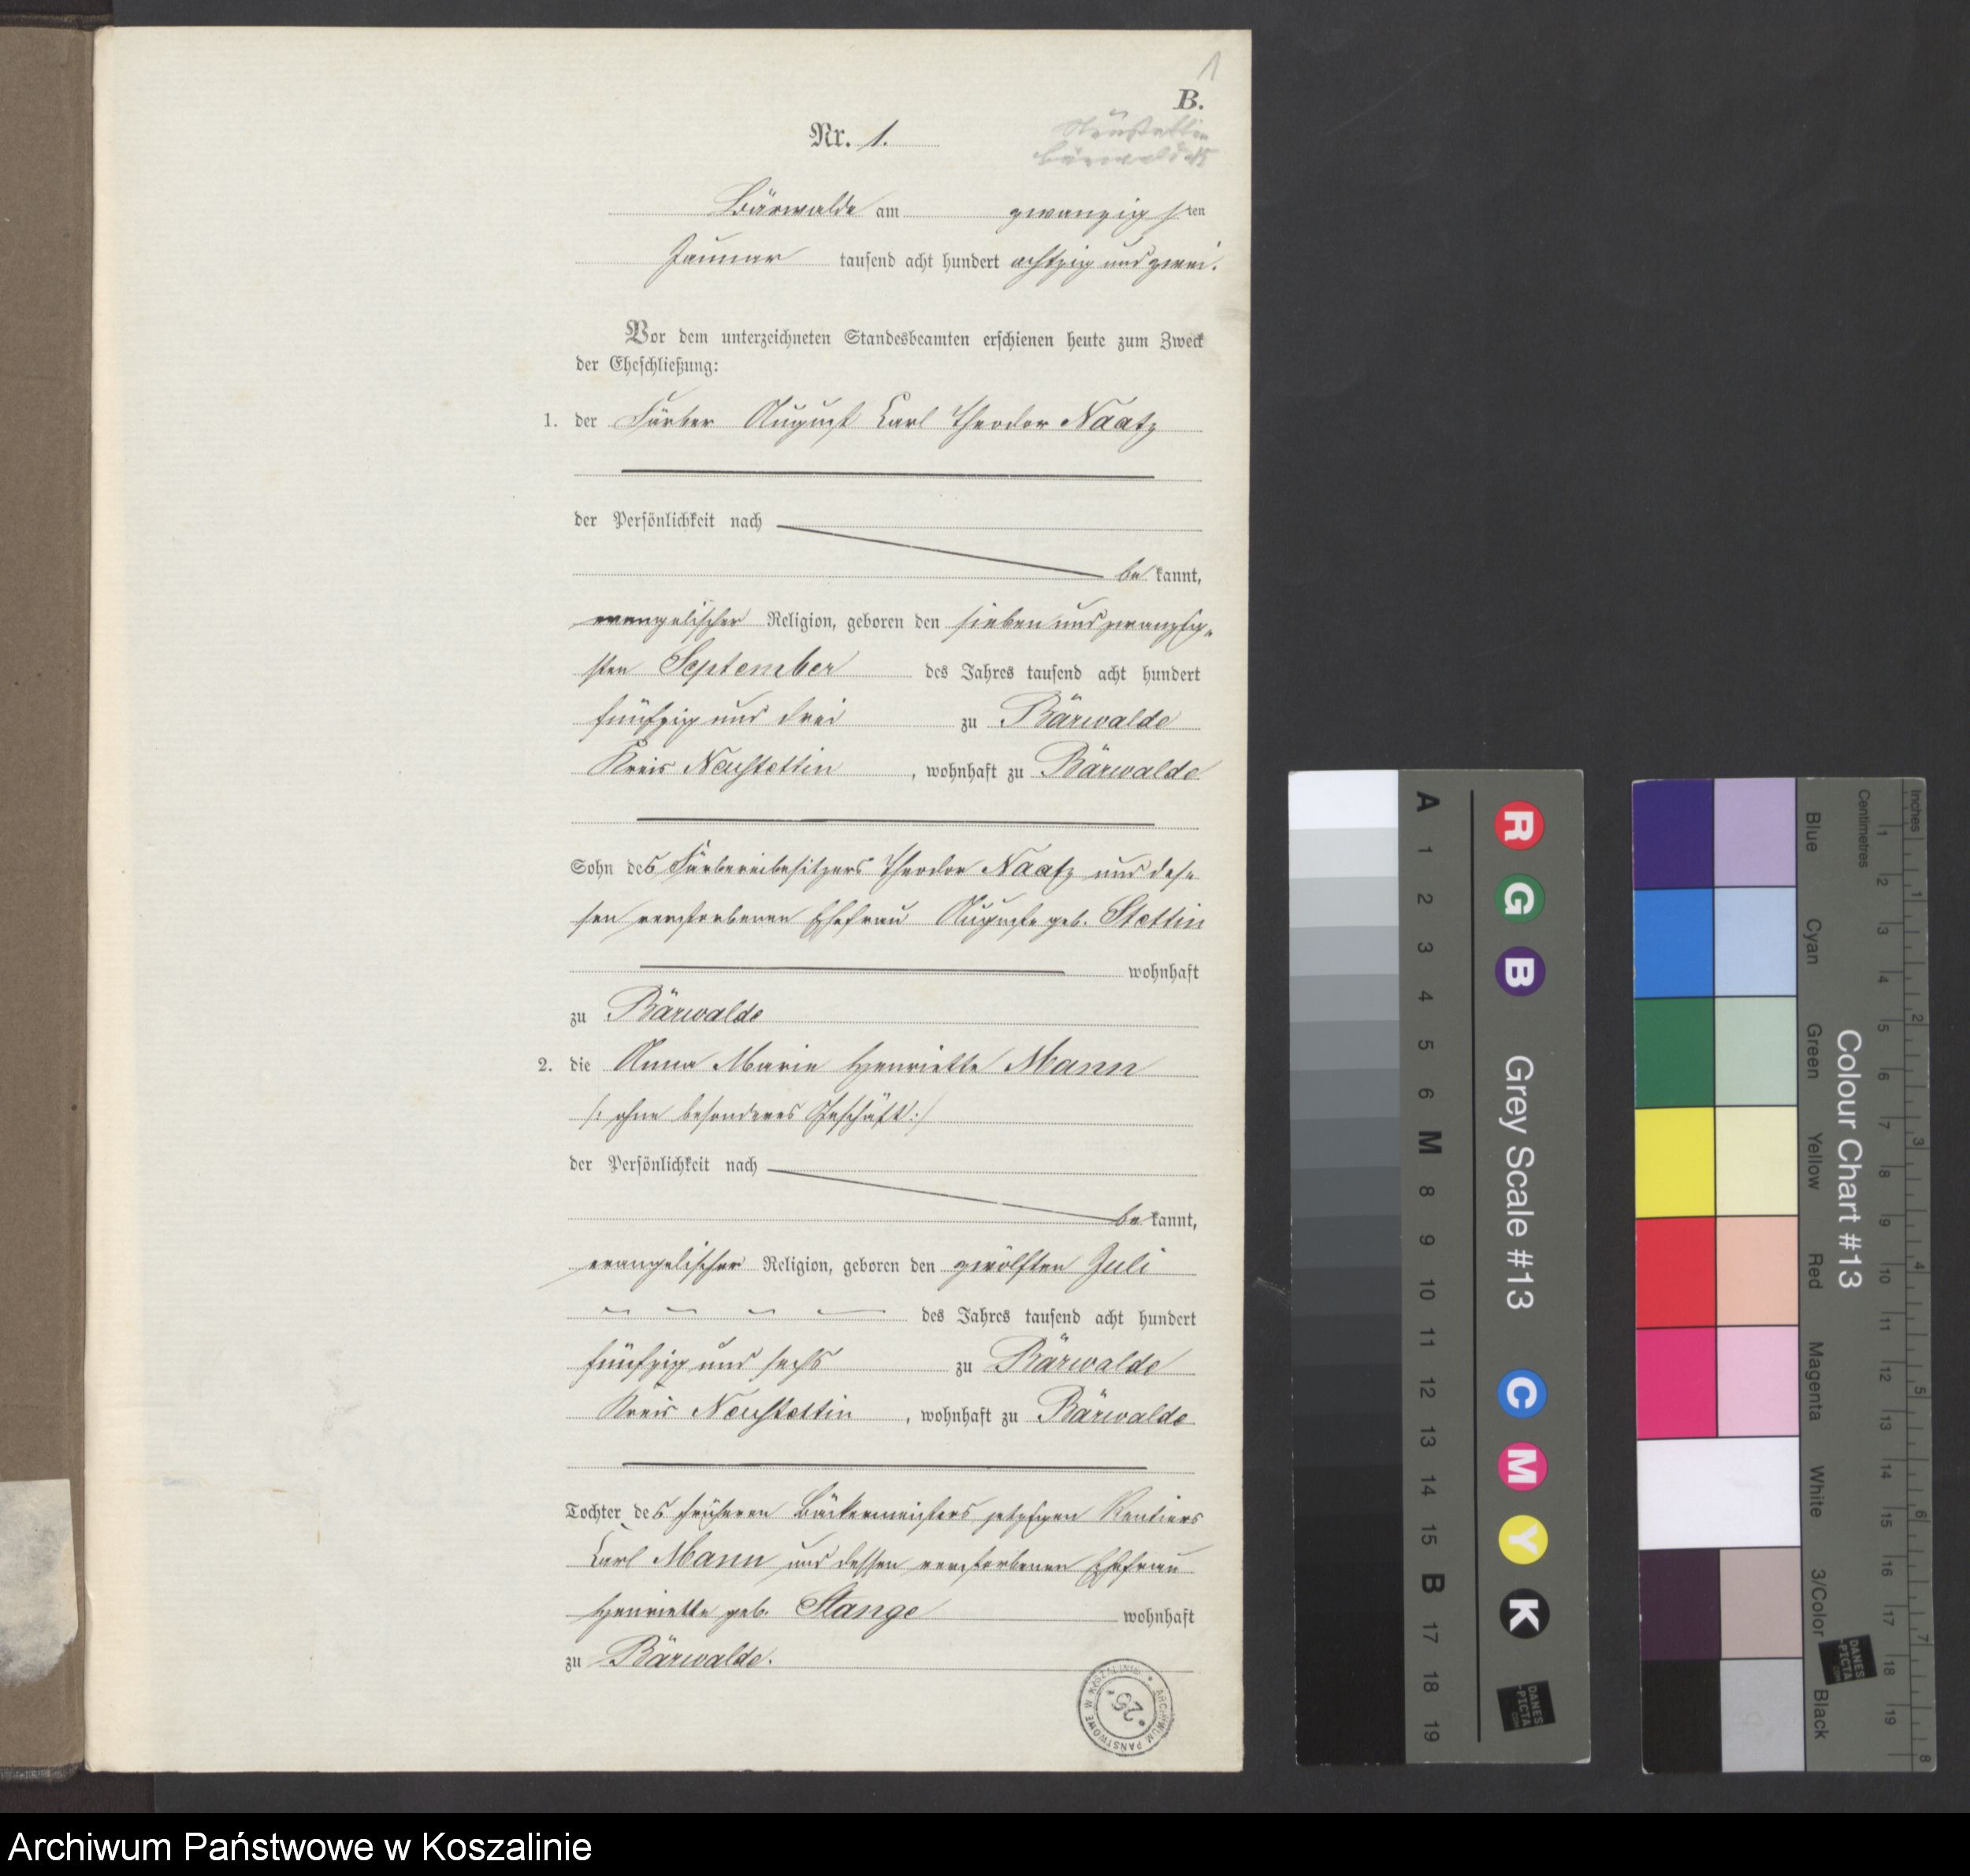 1
B.
Nr. 1.
Neustettin
Bärwalde
Bärwalde am zwanzigsten
Januar tausend acht hundert achtzig und zwei.
Vor dem unterzeichneten Standesbeamten erschienen heute zum Zweck
der Eheschließung:
1. der Färber August Carl Theodor Naatz
der Persönlichkeit nach
bekannt,
evangelischer Religion, geboren den sieben und zwanzig-
sten September des Jahres tausend acht hundert
fünfzig und drei zu Bärwalde
Kreis Neustettin, wohnhaft zu Bärwalde
Sohn des Färbereibesitzers Theodor Naatz und des-
sen verstorbenen Ehefrau Auguste geb. Stettin
wohnhaft
zu Bärwalde
2. die Anna Marie Henriette Mann
/: ohne besonderes Geschäft :/
der Persönlichkeit nach
bekannt,
evangelischer Religion, geboren den zwölften Juli
des Jahres tausend acht hundert
fünfzig und sechs zu Bärwalde
Kreis Neustettin, wohnhaft zu Bärwalde
Tochter des früheren Bäckermeisters jetzigen Rentiers
Carl Mann und dessen verstorbenen Ehefrau
Henriette geb. Stange wohnhaft
zu Bärwalde.
ARCHIWUM PAŃSTWOWE W KOSZALINIE
25
A 1 2 3 4 5 6 M 8 9 10 11 12 13 14 15 B 17 18 19
R G B Grey Scale #13 C M Y K
DANES
-PICTA
.COM
Blue Cyan Green Yellow Red Magenta White 3/Color Black
Colour Chart #13
DANES
-PICTA
.COM
Centimetres 1 2 3 4 5 6 7 8 9 10 11 12 13 14 15 16 17 18 19
Inches 1 2 3 4 5 6 7 8
Archiwum Państwowe w Koszalinie